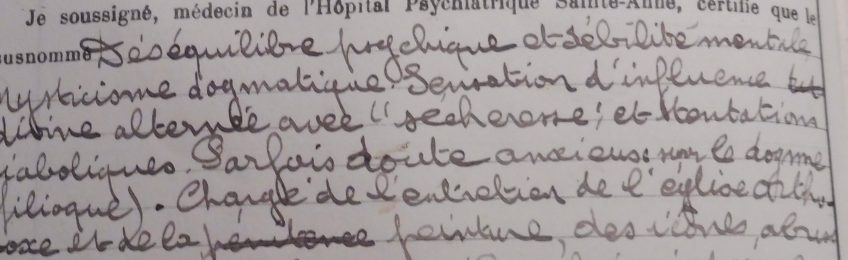 Je soussigné, médecin de l'Hôpital Psychiatrique Sainte-Anne, certifie que le
susnommé Déséquilibre psychique et débilité mentale
Mysticisme dogmatique. Sensation d'influence
divine alternée avec "sécheresse", et tentations
diaboliques. Parfois doute anxieux sur le dogme
filioque). Chargé de l'entretien de l'église ortho-
doxe et de la penitence peinture, des icônes,